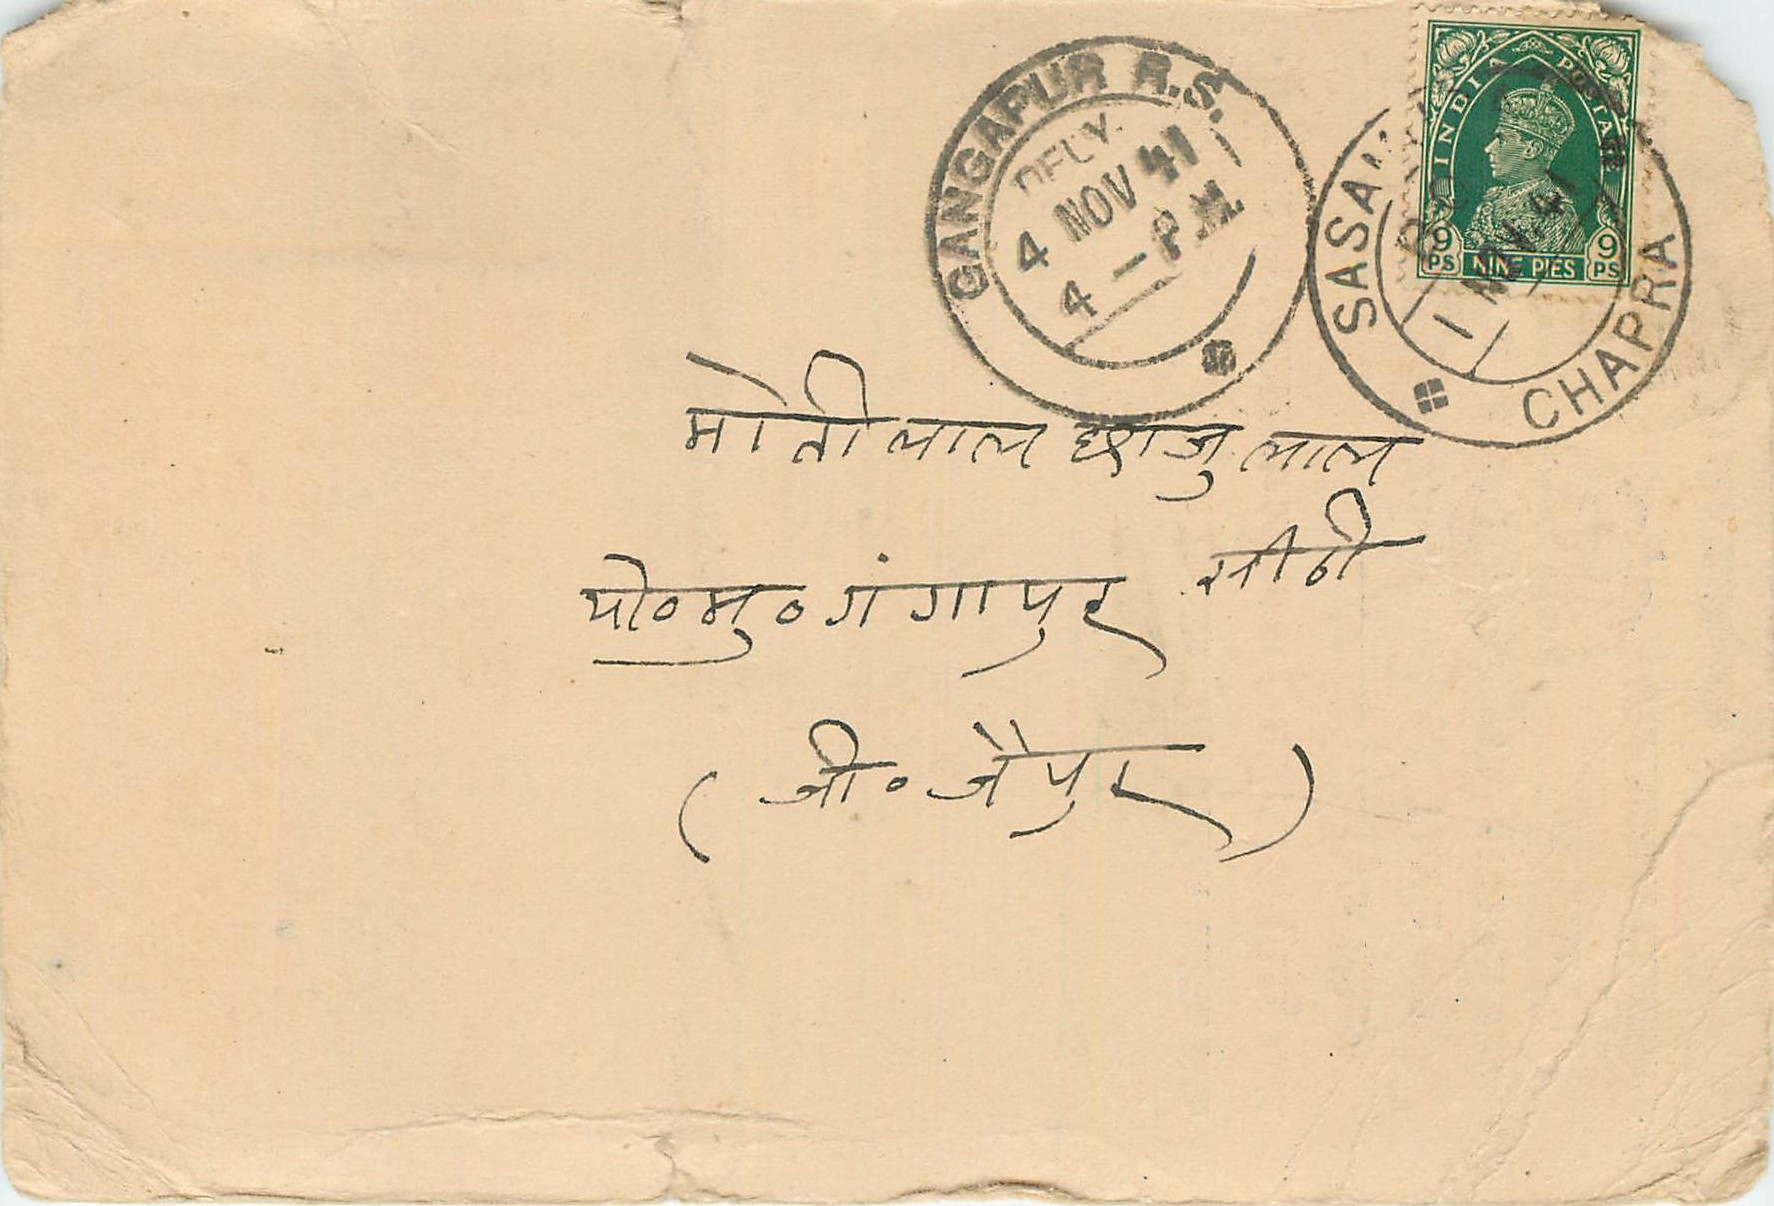 GANGAPUR R.S.
DELY.
4 NOV 41
4 - P.M.
INDIA POSTAGE
9 PS NINE PIES 9 PS
CHAPRA
1 NOV. 41
मोतीलाल छाजुलाल
पो० मु० गंगापुर सीटी
(जी० जैपुर)